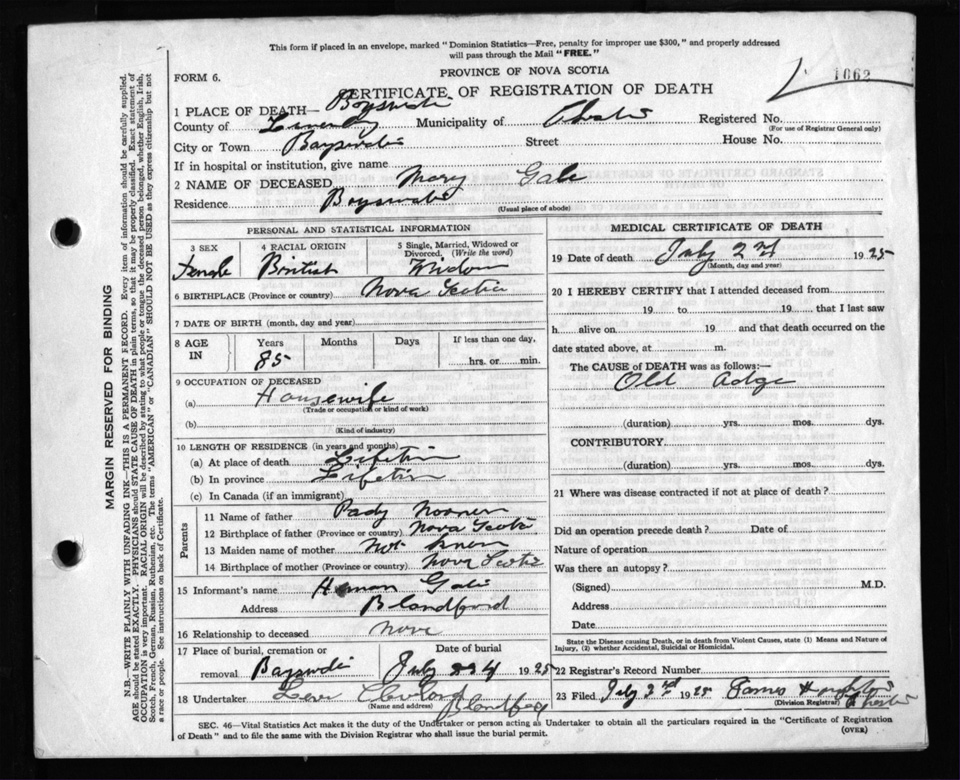 This form if placed in an envelope, marked "Dominion Statistics—Free, penalty for improper use $300," and properly addressed
will pass through the Mail "FREE."
PROVINCE OF NOVA SCOTIA
1062
FORM 6.
CERTIFICATE OF REGISTRATION OF DEATH
1 PLACE OF DEATH—
County of Municipality of Chester Registered No.
(For use of Registrar General only)
City or Town Street House No.
If in hospital or institution, give name
2 NAME OF DECEASED Mary
Residence
(Usual place of abode)
PERSONAL AND STATISTICAL INFORMATION
3 SEX 4 RACIAL ORIGIN 5 Single, Married, Widowed or
Divorced. (Write the word)
Female British Widow
6 BIRTHPLACE (Province or country) Nova Scotia
7 DATE OF BIRTH (month, day and year)
8 AGE IN Years Months Days If less than one day,
85 hrs. or min.
9 OCCUPATION OF DECEASED
(a) Housewife
(Trade or occupation or kind of work)
(b)
(Kind of industry)
10 LENGTH OF RESIDENCE (in years and months)
(a) At place of death
(b) In province
(c) In Canada (if an immigrant)
Parents
11 Name of father Pady
12 Birthplace of father (Province or country) Nova Scotia
13 Maiden name of mother Not
14 Birthplace of mother (Province or country) Nova Scotia
15 Informant's name
Address Blandford
16 Relationship to deceased
17 Place of burial, cremation or Date of burial
removal July 1925
18 Undertaker
(Name and address) Blandford
MEDICAL CERTIFICATE OF DEATH
19 Date of death July 2nd 1925
(Month, day and year)
20 I HEREBY CERTIFY that I attended deceased from
19 to 19 that I last saw
h alive on 19 and that death occurred on the
date stated above, at m.
The CAUSE of DEATH was as follows:—
Old Adge
(duration) yrs. mos. dys.
CONTRIBUTORY
(duration) yrs. mos. dys.
21 Where was disease contracted if not at place of death?
Did an operation precede death? Date of
Nature of operation
Was there an autopsy?
(Signed) M.D.
Address
Date
State the Disease causing Death, or in death from Violent Causes, state (1) Means and Nature of
Injury, (2) whether Accidental, Suicidal or Homicidal.
22 Registrar's Record Number
23 Filed July 2nd 1925 James
(Division Registrar) Chester
SEC. 46—Vital Statistics Act makes it the duty of the Undertaker or person acting as Undertaker to obtain all the particulars required in the "Certificate of Registration
of Death" and to file the same with the Division Registrar who shall issue the burial permit.
(OVER)
MARGIN RESERVED FOR BINDING
N.B.—WRITE PLAINLY WITH UNFADING INK—THIS IS A PERMANENT RECORD. Every item of information should be carefully supplied.
AGE should be stated EXACTLY. PHYSICIANS should STATE CAUSE OF DEATH in plain terms, so that it may be properly classified. Exact statement of
OCCUPATION is very important. RACIAL ORIGIN will be described by stating to what people or tongue the deceased person belonged, whether English, Irish,
Scotch, French, German, Russian, Ruthenian, etc. The terms "AMERICAN" or "CANADIAN" SHOULD NOT BE USED as they express citizenship but not
a race or people. See instructions on back of Certificate.